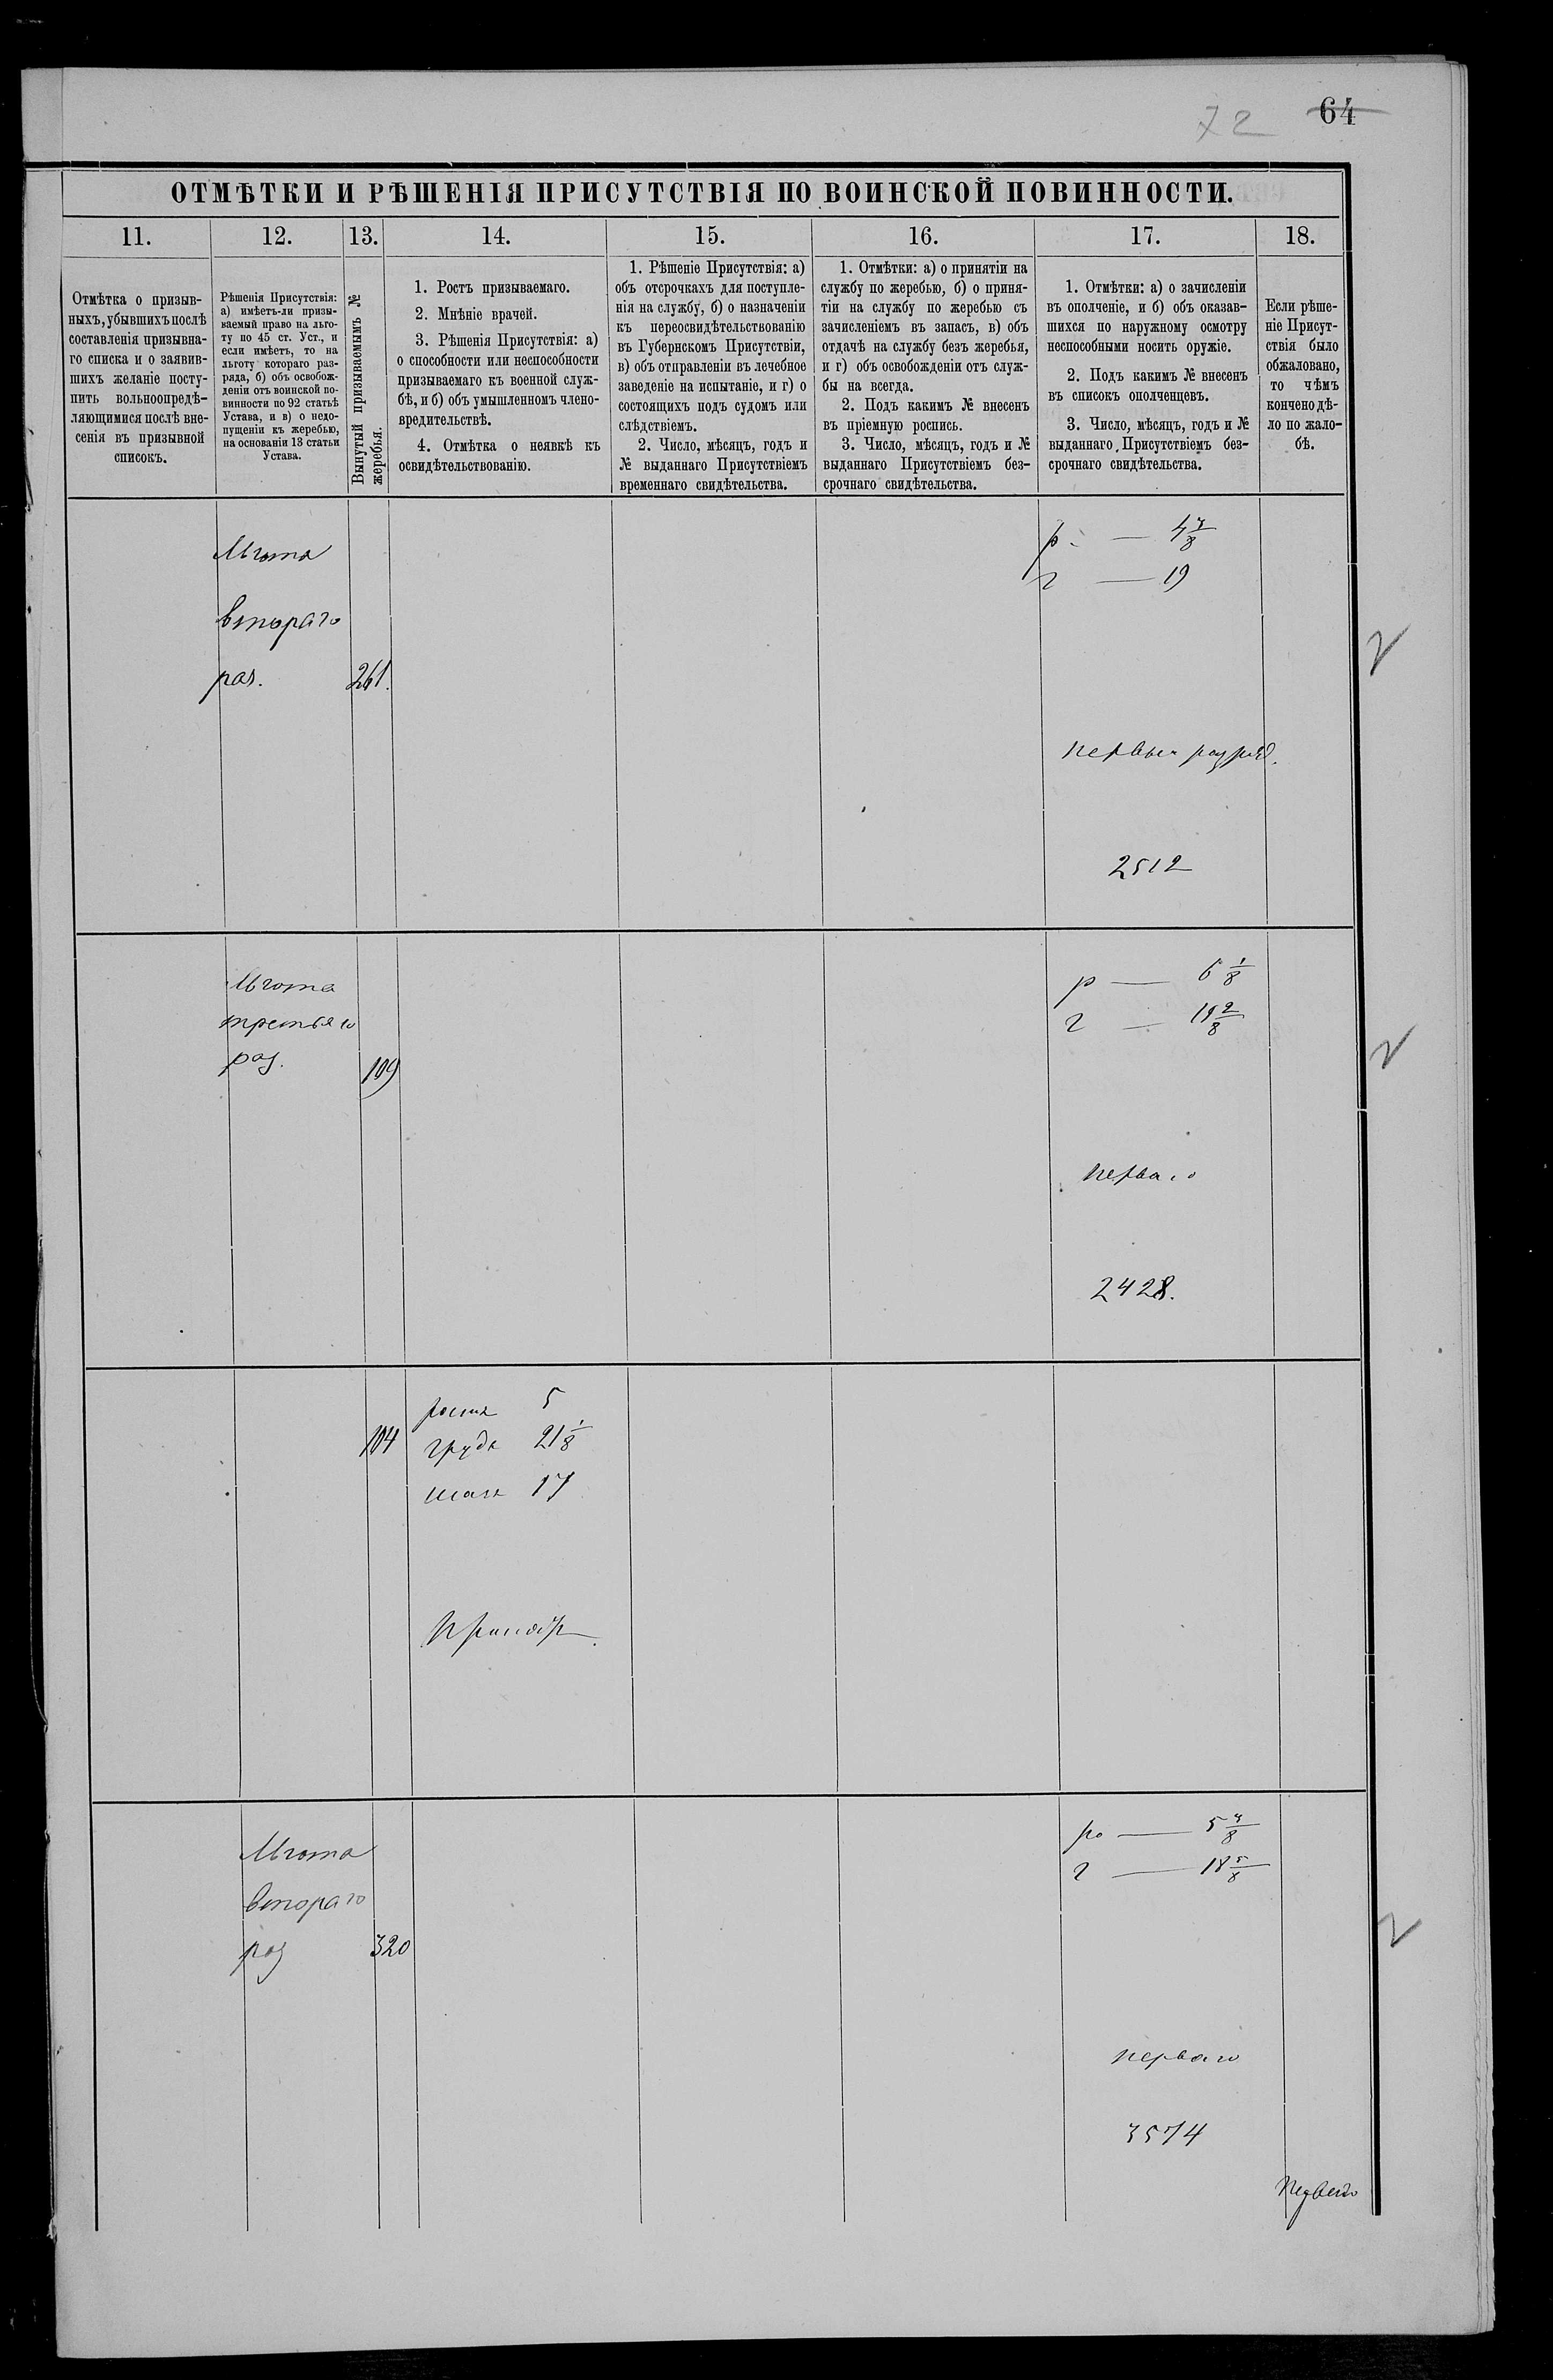 72 64
ОТМѢТКИ И РѢШЕНІЯ ПРИСУТСТВІЯ ПО ВОИНСКОЙ ПОВИННОСТИ.
11.
Отмѣтка о призыв-
ныхъ, убывшихъ послѣ
составленія призывна-
го списка и о заявив-
шихъ желаніе посту-
пить вольноопредѣ-
ляющимися послѣ вне-
сенія въ призывной
списокъ.
12.
Рѣшенія Присутствія:
а) имѣетъ-ли призы-
ваемый право на льго-
ту по 45 ст. Уст., и
если имѣетъ, то на
льготу котораго раз-
ряда, б) объ освобож-
деніи отъ воинской по-
винности по 92 статьѣ
Устава, и в) о недо-
пущеніи къ жеребью,
на основаніи 13 статьи
Устава.
13.
Вынутый призываемымъ №
жеребья.
14.
1. Ростъ призываемаго.
2. Мнѣніе врачей.
3. Рѣшенія Присутствія: а)
о способности или неспособности
призываемаго къ военной служ-
бѣ, и б) объ умышленномъ члено-
вредительствѣ.
4. Отмѣтка о неявкѣ къ
освидѣтельствованію.
15.
1. Рѣшеніе Присутствія: а)
объ отсрочкахъ для поступле-
нія на службу, б) о назначеніи
къ переосвидѣтельствованію
въ Губернскомъ Присутствіи,
в) объ отправленіи въ лечебное
заведеніе на испытаніе, и г) о
состоящихъ подъ судомъ или
слѣдствіемъ.
2. Число, мѣсяцъ, годъ и
№ выданнаго Присутствіемъ
временнаго свидѣтельства.
16.
1. Отмѣтки: а) о принятіи на
службу по жеребью, б) о приня-
тіи на службу по жеребью съ
зачисленіемъ въ запасъ, в) объ
отдачѣ на службу безъ жеребья,
и г) объ освобожденіи отъ служ-
бы на всегда.
2. Подъ какимъ № внесенъ
въ пріемную роспись.
3. Число, мѣсяцъ, годъ и №
выданнаго Присутствіемъ без-
срочнаго свидѣтельства.
17.
1. Отмѣтки: а) о зачисленіи
въ ополченіе, и б) объ оказав-
шихся по наружному осмотру
неспособными носить оружіе.
2. Подъ какимъ № внесенъ
въ списокъ ополченцевъ.
3. Число, мѣсяцъ, годъ и №
выданнаго Присутствіемъ без-
срочнаго свидѣтельства.
18.
Если рѣше-
ніе Присут-
ствія было
обжаловано,
то чѣмъ
кончено дѣ-
ло по жало-
бѣ.
Льгота
втораго
раз.
261.
р.
г — 19
2512
Льгота
третьяго
раз.
109
р — 6 1/8
г — 19 2/8
перваго
2428.
104
ростъ 5
грудь 21 1/8
17
Льгота
втораго
раз
320
ро
г — 18 5/8
перваго
3574